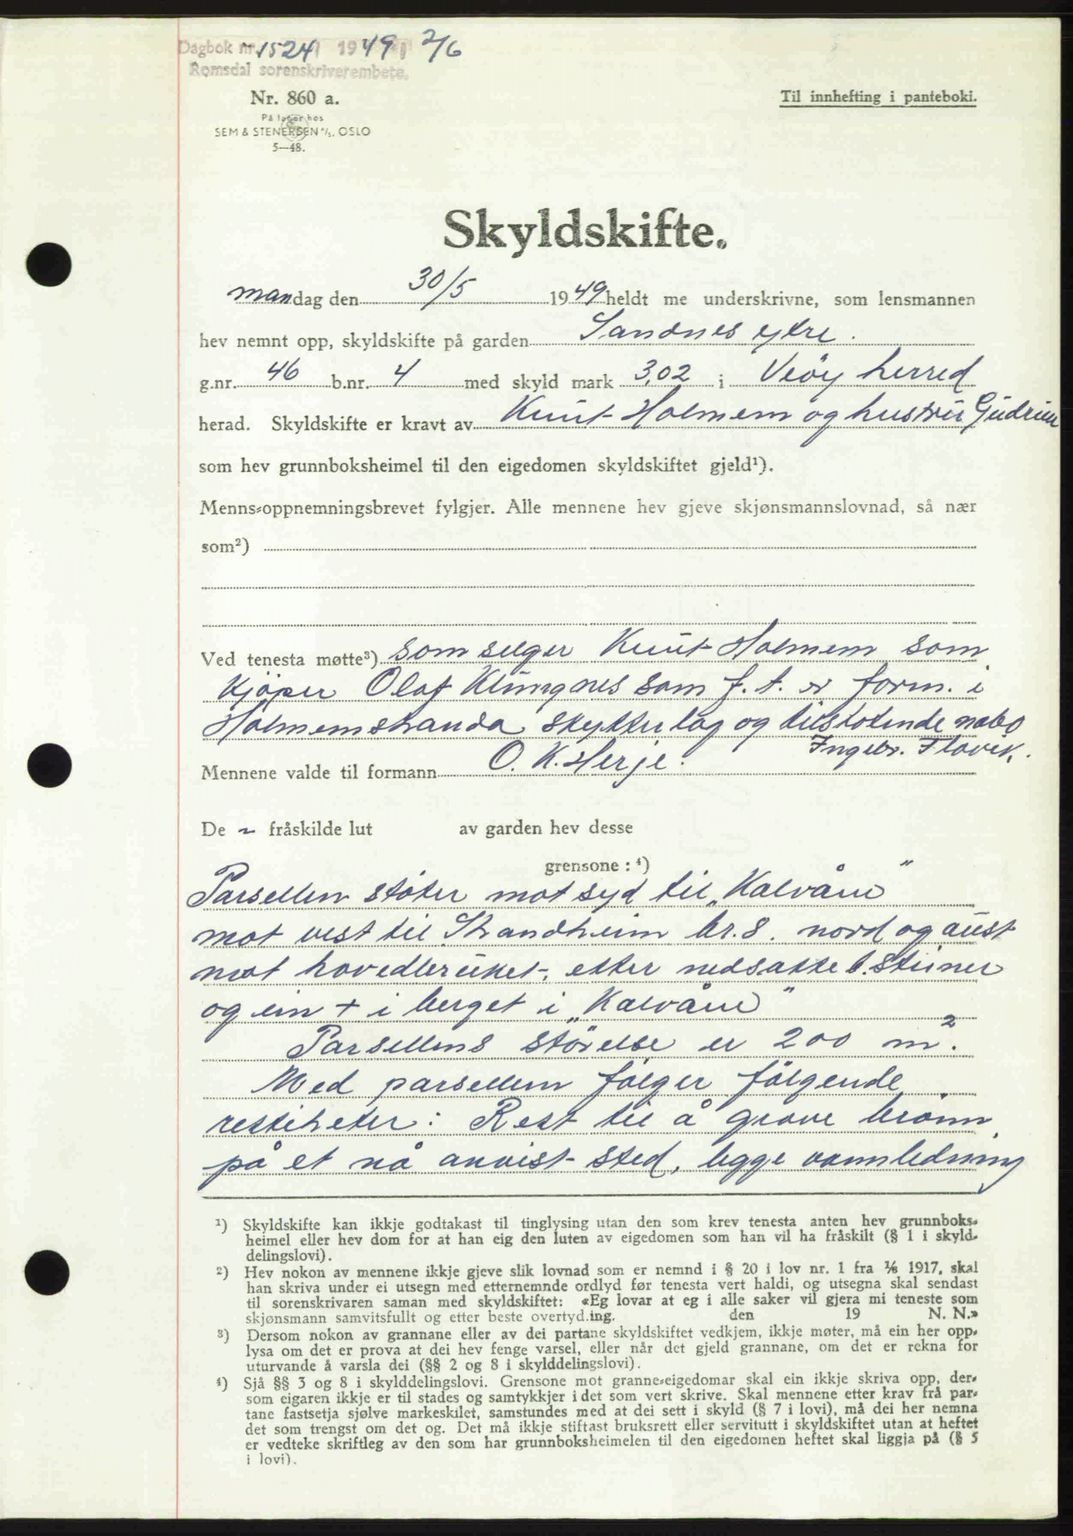 Dagbok nr. 1524 1949 2/6
Romsdal sorenskriverembete.
Nr. 860 a.
Til innhefting i panteboki.
På lager hos
SEM & STENERSEN A/S. OSLO
5—48.
Skyldskifte.
mandag den 30/5 1949 heldt me underskrivne, som lensmannen
hev nemnt opp, skyldskifte på garden Sandnes ytre.
g.nr. 46 b.nr. 4 med skyld mark 3,02 i Veöy herred
herad. Skyldskifte er kravt av Knut Holmem og hustru Gudrun
som hev grunnboksheimel til den eigedomen skyldskiftet gjeld¹).
Menns-oppnemningsbrevet fylgjer. Alle mennene hev gjeve skjønsmannslovnad, så nær
som²)
Ved tenesta møtte³) som selger Knut Holmem som
kjöper Olaf Klungnes som f. t. er form. i
Holmemstranda skytterlag og tilstötende nabo
Ingebr. Flovik.
Mennene valde til formann O. K. Herje.
De ~ fråskilde lut av garden hev desse
grensone : ⁴)
Parsellen støter mot syd til „Kalvåne”
mot vest til Strandheim br. 8. nord og aust
mot hovedbruket, etter nedsatte 6. steiner
og ein + i berget i „Kalvåne”
Parsellens störelse er 200 m².
Med parsellen fölger fölgende
rettiheter: Rett til å grave brönn
på et nå anvist sted, legge vannledning
¹) Skyldskifte kan ikkje godtakast til tinglysing utan den som krev tenesta anten hev grunnboks-
heimel eller hev dom for at han eig den luten av eigedomen som han vil ha fråskilt (§ 1 i skyld-
delingslovi).
²) Hev nokon av mennene ikkje gjeve slik lovnad som er nemnd i § 20 i lov nr. 1 fra ⅙ 1917, skal
han skriva under ei utsegn med etternemnde ordlyd før tenesta vert haldi, og utsegna skal sendast
til sorenskrivaren saman med skyldskiftet: «Eg lovar at eg i alle saker vil gjera mi teneste som
skjønsmann samvitsfullt og etter beste overtyd.ing. den 19 N. N.»
³) Dersom nokon av grannane eller av dei partane skyldskiftet vedkjem, ikkje møter, må ein her opp-
lysa om det er prova at dei hev fenge varsel, eller når det gjeld grannane, om det er rekna for
uturvande å varsla dei (§§ 2 og 8 i skylddelingslovi).
⁴) Sjå §§ 3 og 8 i skylddelingslovi. Grensone mot granne-eigedomar skal ein ikkje skriva opp, der-
som eigaren ikkje er til stades og samtykkjer i det som vert skrive. Skal mennene etter krav frå par-
tane fastsetja sjølve markeskilet, samstundes med at dei sett i skyld (§ 7 i lovi), må dei her nemna
det som trengst om det og. Det må ikkje stiftast bruksrett eller servitutt i skyldskiftet utan at heftet
er vedteke skriftleg av den som har grunnboksheimelen til den eigedomen heftet skal liggja på (§ 5
i lovi).